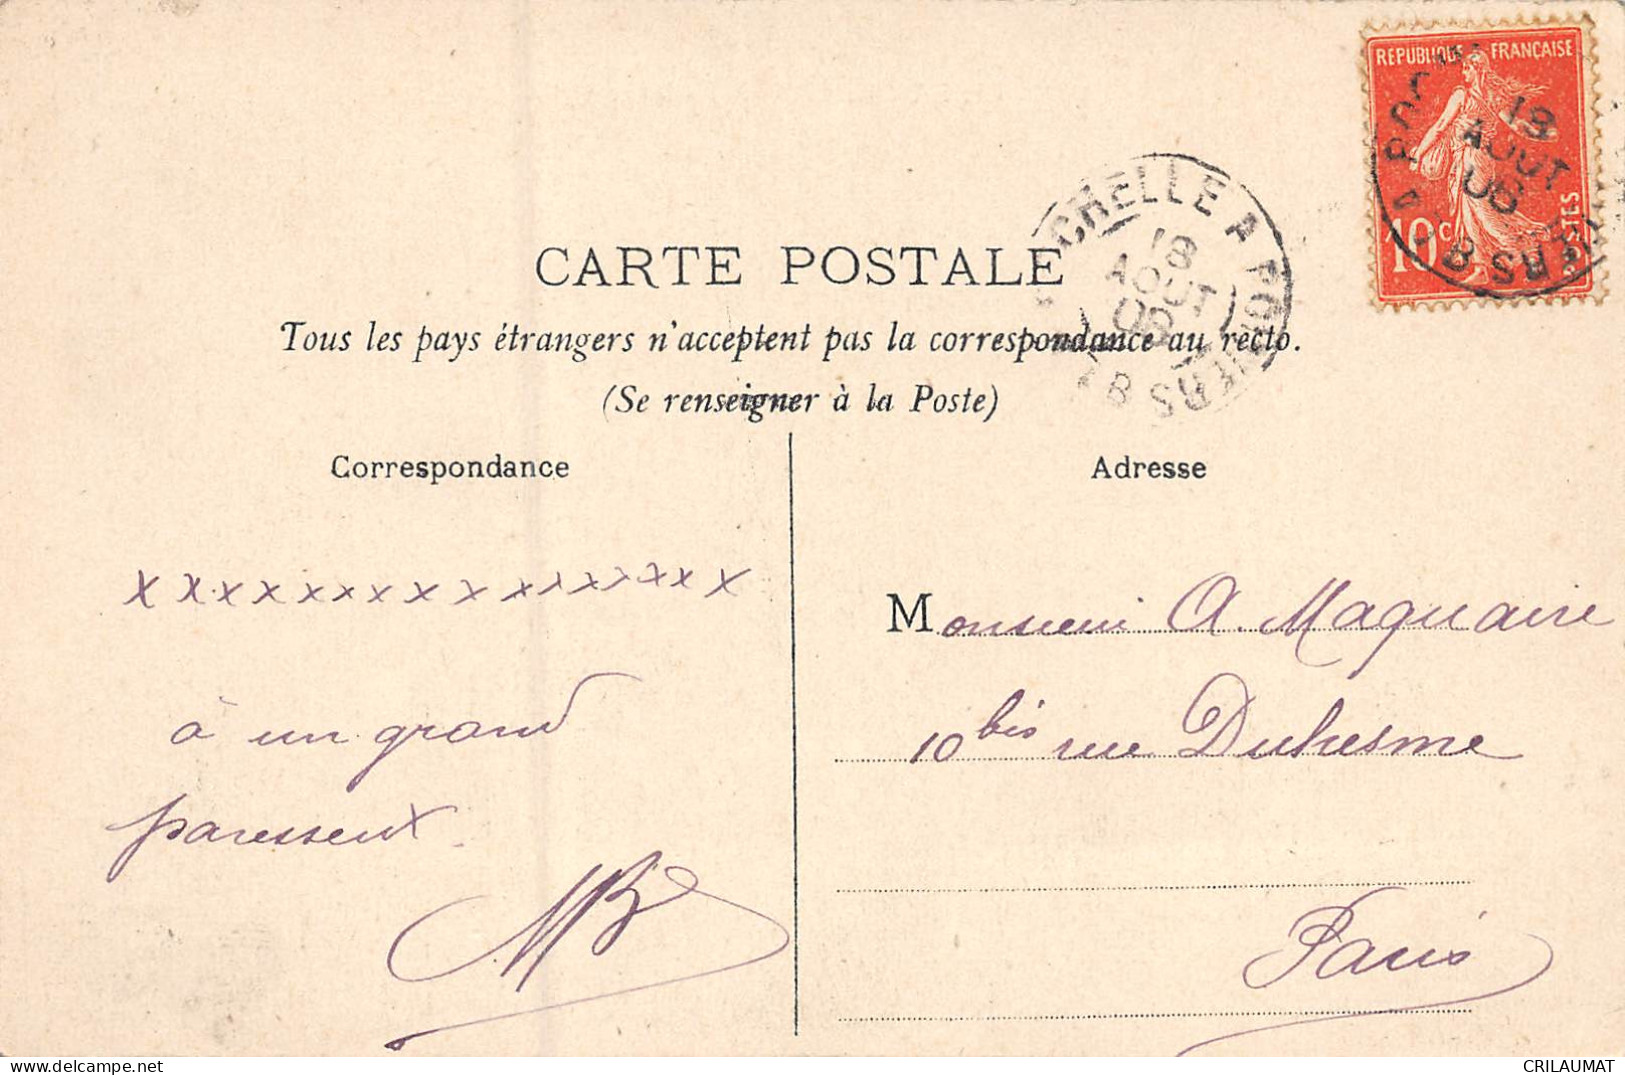 REPUBLIQUE FRANÇAISE
10c
POSTES
18
AOUT
CHELLE A PO
18
AOUT
CARTE POSTALE
Tous les pays étrangers n'acceptent pas la correspondance au recto.
(Se renseigner à la Poste)
Correspondance
Adresse
x x x x x x x x x x x x x x x x x
à un grand
paresseux.
MB
Monsieur A. Maquaire
10 bis rue Duhesme
Paris
CRILAUMAT